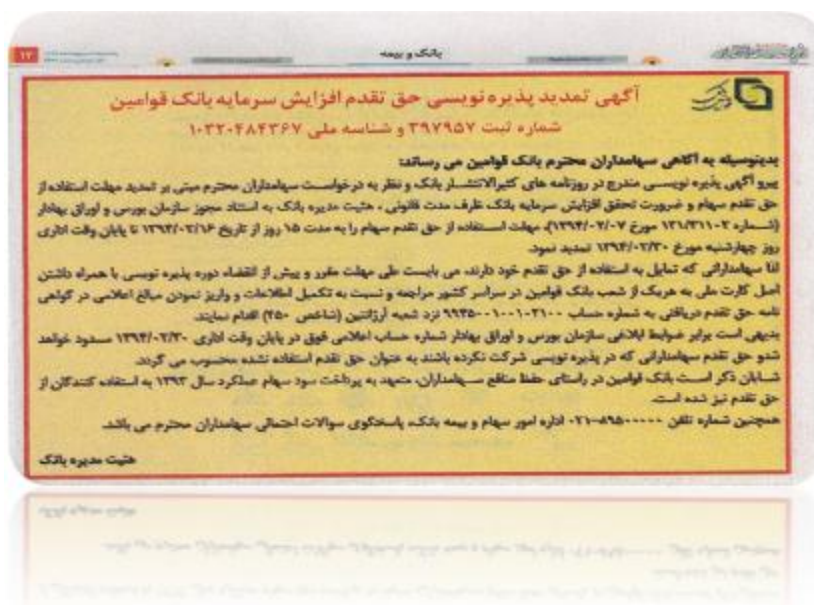 ۱۳
بانک و بیمه
آگهی تمدید پذیره نویسی حق تقدم افزایش سرمایه بانک قوامین
شماره ثبت ۳۹۷۹۵۷ و شناسه ملی ۱۰۳۲۰۴۸۴۳۶۷
بدینوسیله به آگاهی سهامداران محترم بانک قوامین می رساند:
پیرو آگهی پذیره نویسی مندرج در روزنامه های کثیرالانتشار بانک و نظر به درخواست سهامداران محترم مبنی بر تمدید مهلت استفاده از
حق تقدم سهام و ضرورت تحقق افزایش سرمایه بانک ظرف مدت قانونی ، هئیت مدیره بانک به استناد مجوز سازمان بورس و اوراق بهادار
(شماره ۱۲۱/۳۱۱۰۳ مورخ ۱۳۹۴/۰۲/۰۷)، مهلت استفاده از حق تقدم سهام را به مدت ۱۵ روز از تاریخ ۱۳۹۴/۰۲/۱۶ تا پایان وقت اداری
روز چهارشنبه مورخ ۱۳۹۴/۰۲/۳۰ تمدید نمود.
لذا سهامدارانی که تمایل به استفاده از حق تقدم خود دارند، می بایست طی مهلت مقرر و پیش از انقضاء دوره پذیره نویسی با همراه داشتن
اصل کارت ملی به هریک از شعب بانک قوامین در سراسر کشور مراجعه و نسبت به تکمیل اطلاعات و واریز نمودن مبالغ اعلامی در گواهی
نامه حق تقدم دریافتی به شماره حساب نزد شعبه آرژانتین (شاخص ۴۵۰) اقدام نمایند.
بدیهی است برابر ضوابط ابلاغی سازمان بورس و اوراق بهادار شماره حساب اعلامی فوق در پایان وقت اداری ۱۳۹۴/۰۲/۳۰ مسدود خواهد
شدو حق تقدم سهامدارانی که در پذیره نویسی شرکت نکرده باشند به عنوان حق تقدم استفاده نشده محسوب می گردد.
شایان ذکر است بانک قوامین در راستای حفظ منافع سهامداران، متعهد به پرداخت سود سهام عملکرد سال ۱۳۹۳ به استفاده کنندگان از
حق تقدم نیز شده است.
همچنین شماره تلفن ۸۹۵۰۰۰۰۰-۰۲۱ اداره امور سهام و بیمه بانک، پاسخگوی سوالات احتمالی سهامداران محترم می باشد.
هئیت مدیره بانک